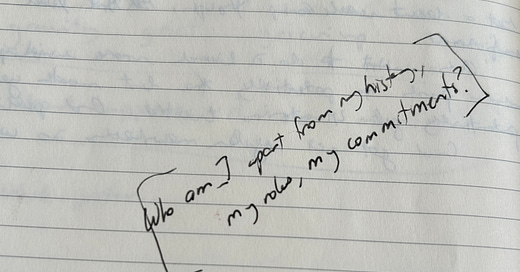 [Who am I apart from my history,
my roles, my commitments?]